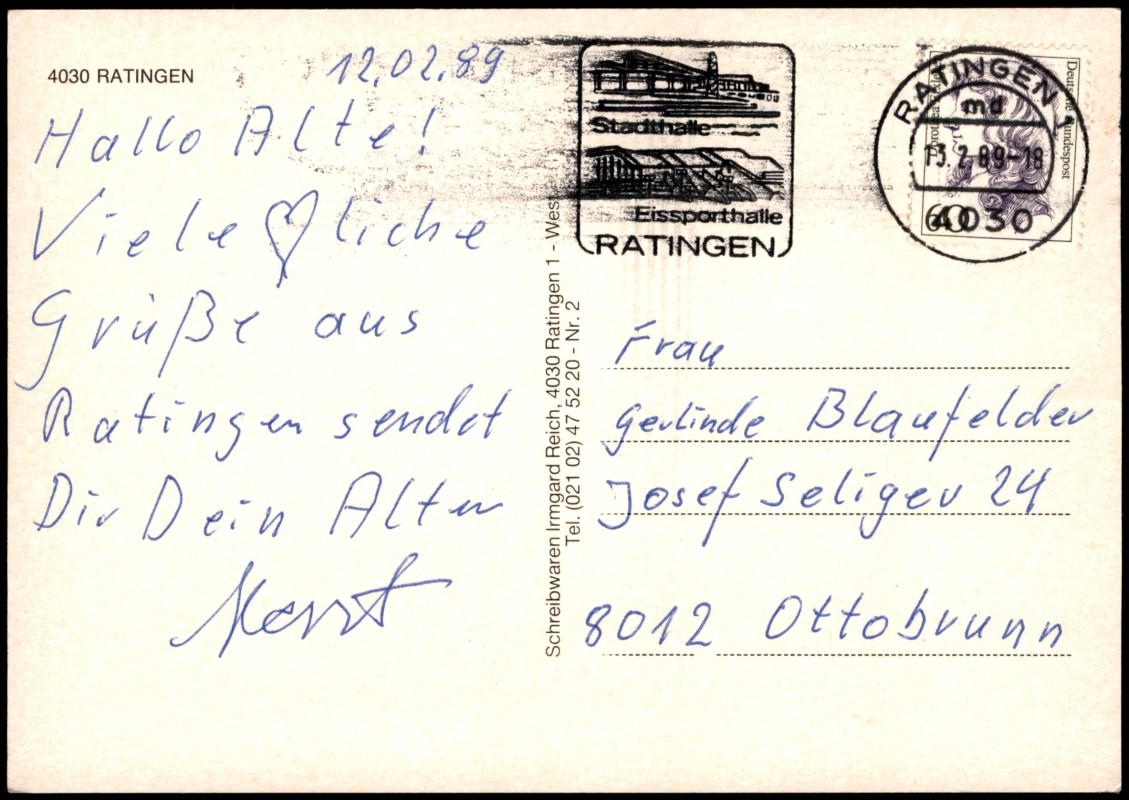 4030 RATINGEN
12.02.89
Hallo Alte!
Viele liche
Grüße aus
Ratingen sendet
Dir Dein Alter
Schreibwaren Irmgard Reich, 4030 Ratingen 1 - West
Tel. (021 02) 47 52 20 - Nr. 2
Stadthalle
Eissporthalle
RATINGEN
RATINGEN 1
md
13.2.89-18
4030
Deutsche Bundespost
60
Frau
Gerlinde Blaufelder
Josef Seliger 24
8012 Ottobrunn